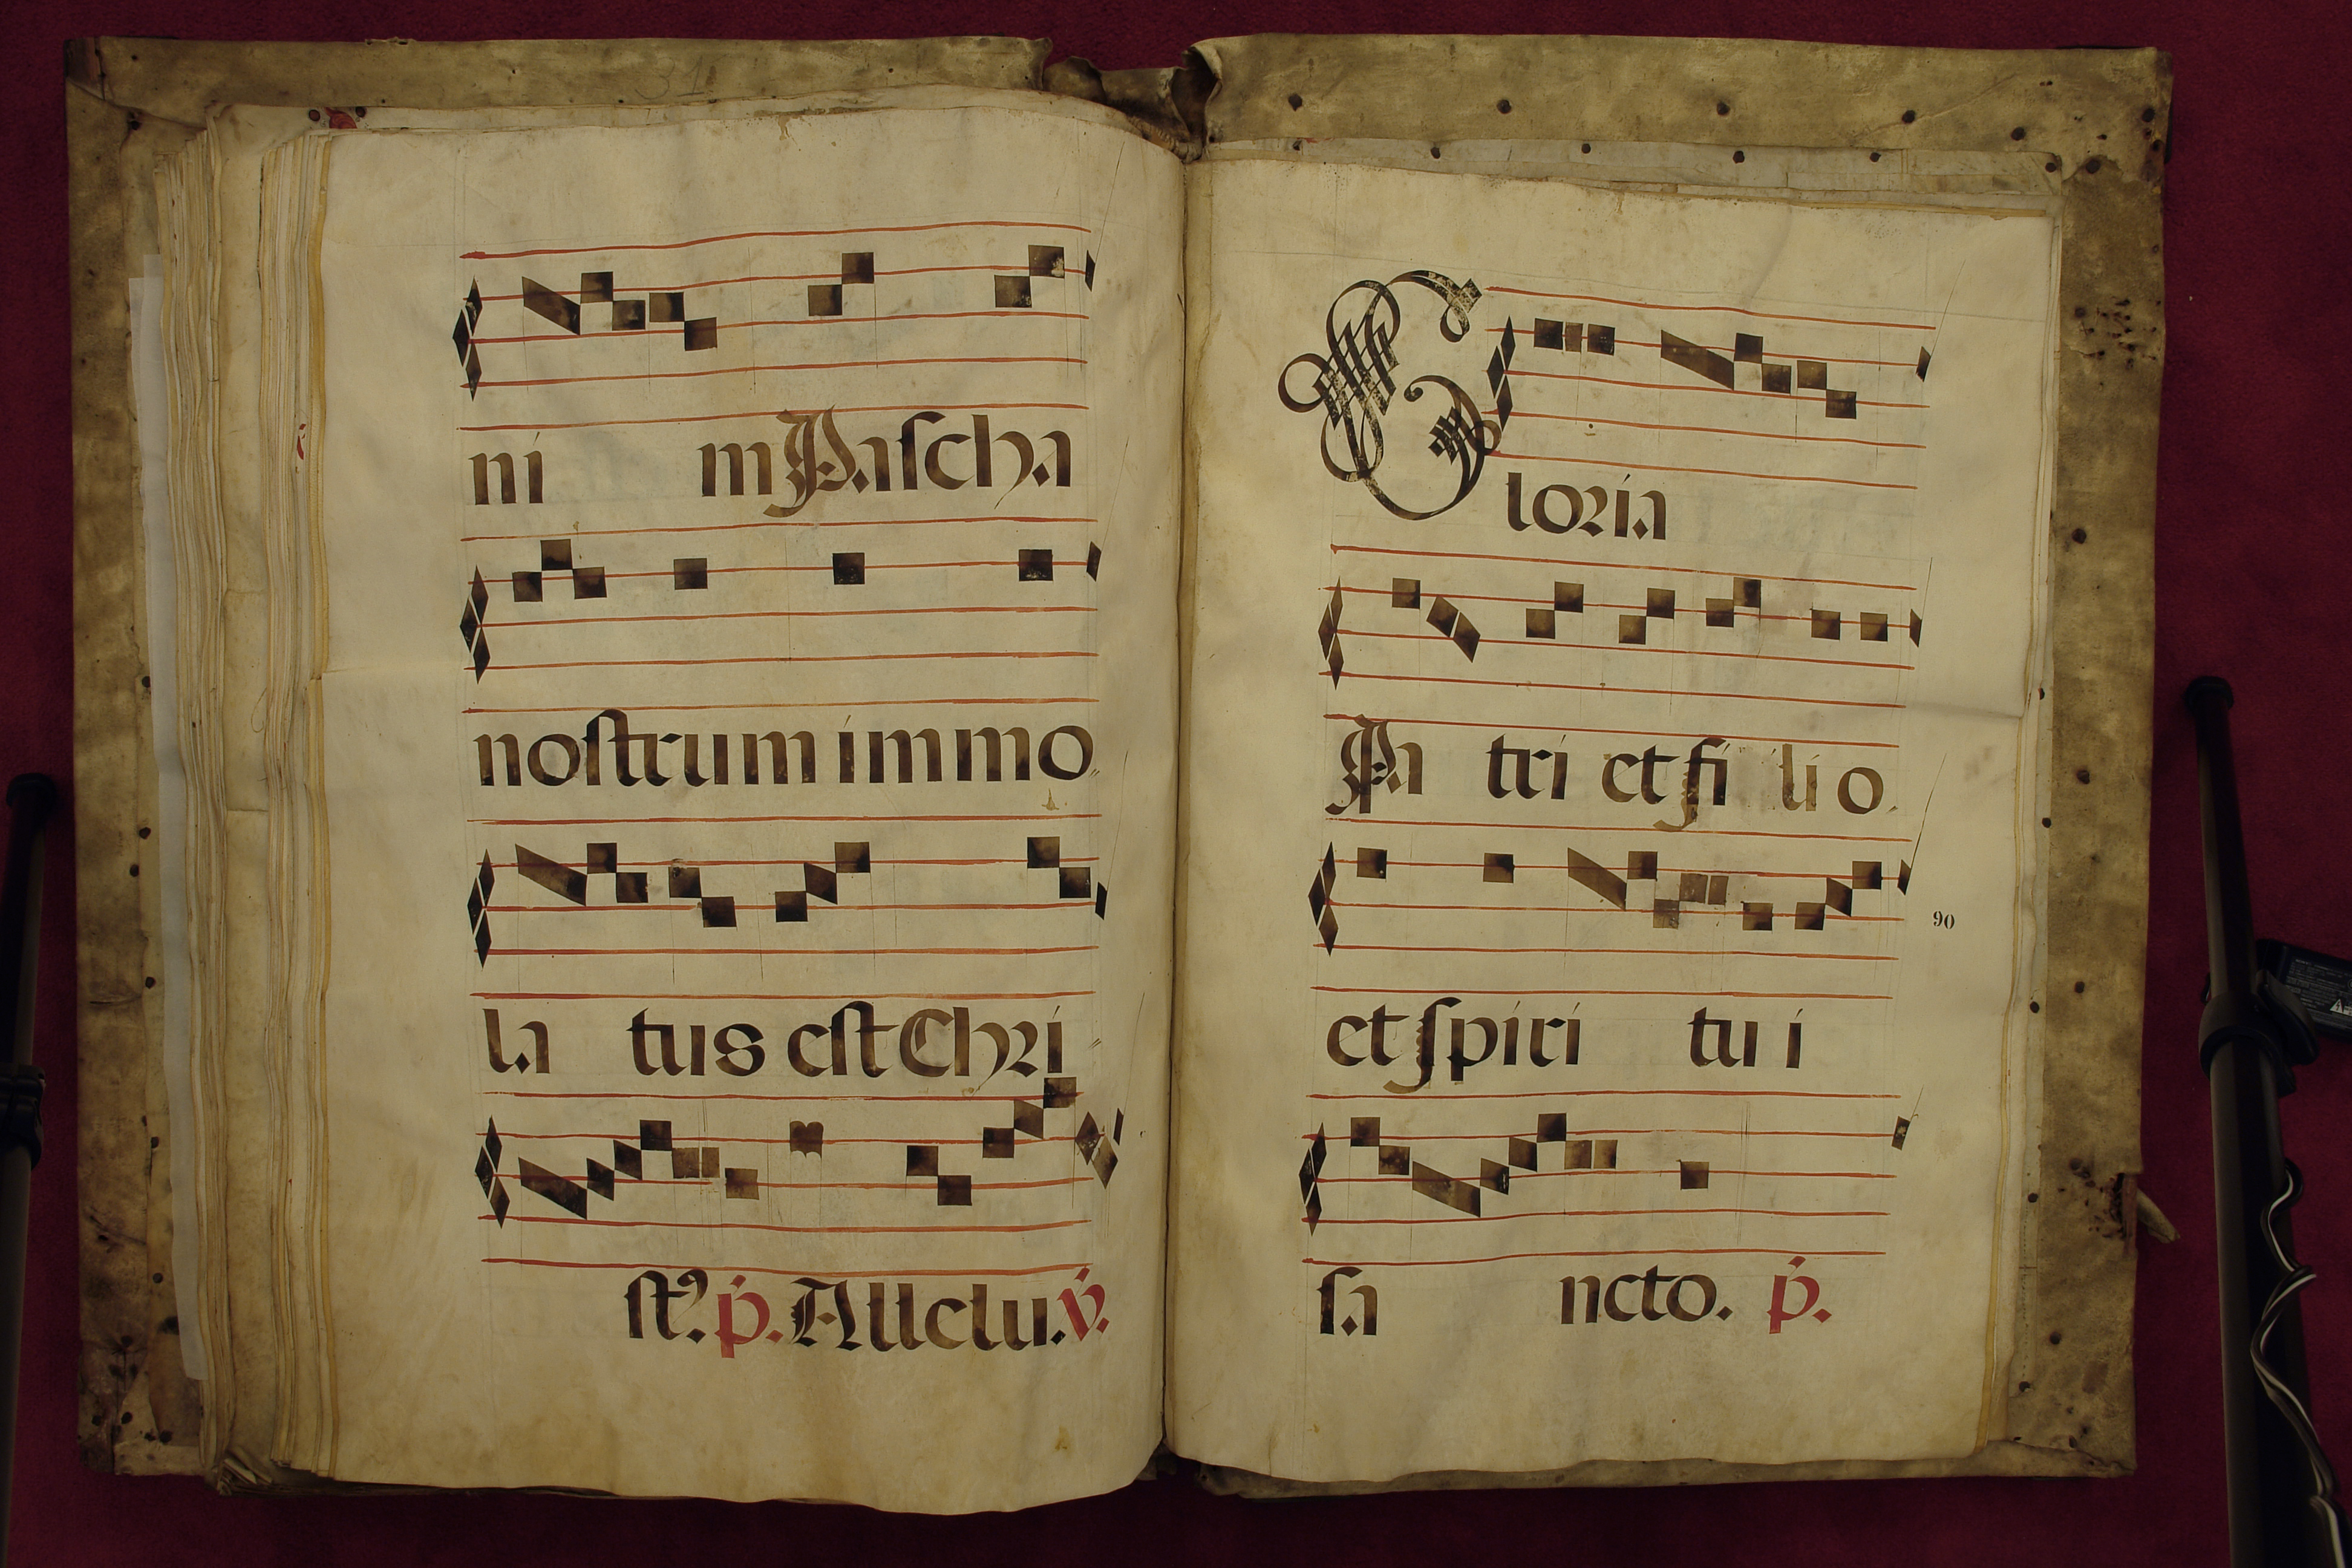 31
ni m Pascha
nostrum immo
la tus est Chri
st9. p. Allelu. v.
Gloria
Pa tri et fi li o
90
et spiri tu i
sa ncto. p.